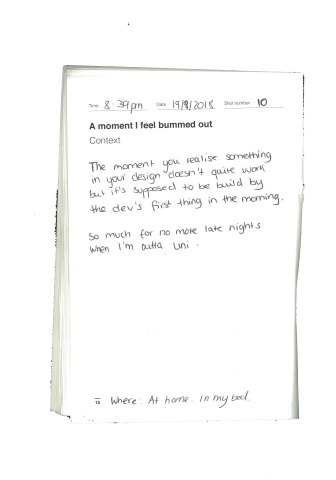 Time 8:39pm Date 19/9/2018 Shot number 10
A moment I feel bummed out
Context
The moment you realise something
in your design doesn't quite work
but it's supposed to be build by
the dev's first thing in the morning.
So much for no more late nights
when I'm outta uni.
Where: At home. In my bed.